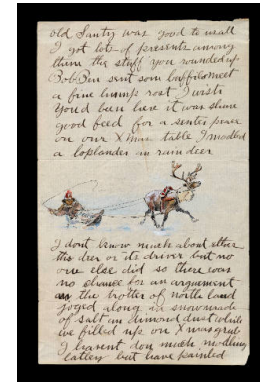 old Santy was good to us all
I got lots of presents among
them the stuff you rounded up
Bob Sun sent som buffilo meet
a fine hump rost I wish
Youd been here it was shure
good feed for a senter
on our X mas table I modled
a loplander in rain deer
I dont know much about ether
the deer or its driver but no
one else did so there was
no chance for an arguement
the trotter of north land
joged along in snow made
of salt an dimond dust while
we filled up on X mas grub
I havent don much modling
latley but have painted